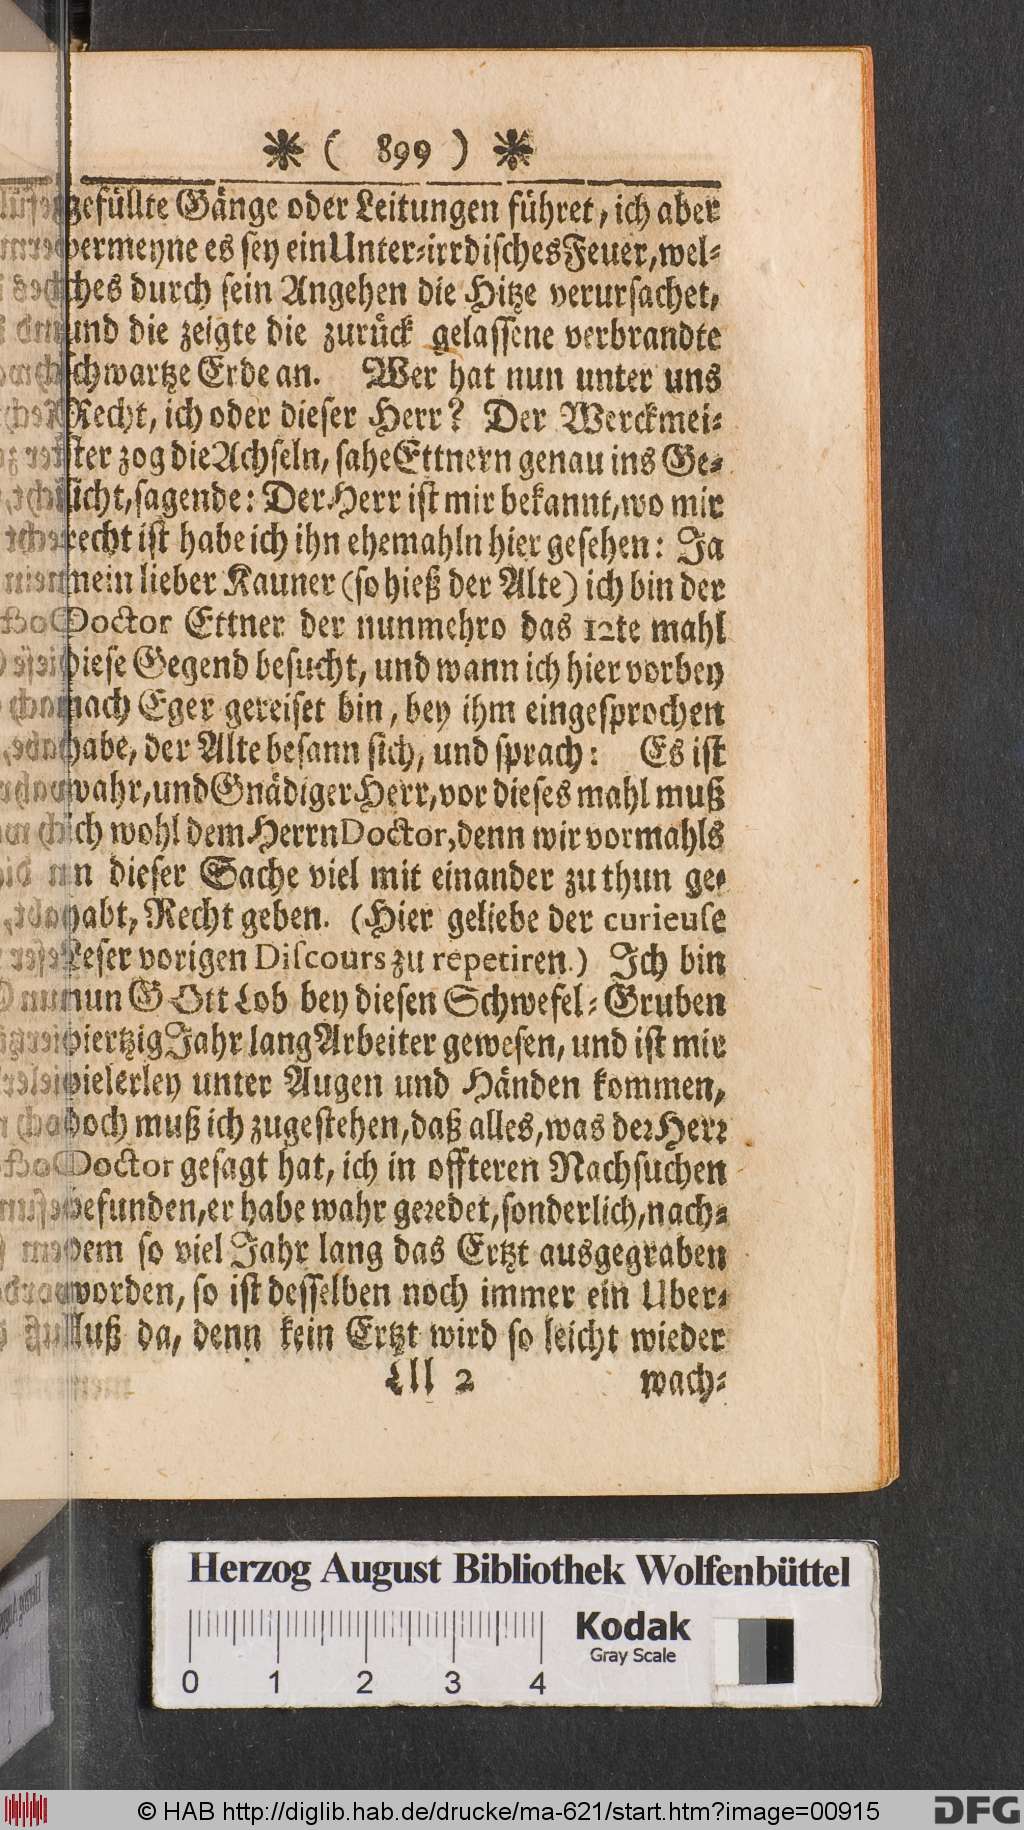 ( 899 )
gefüllte Gänge oder Leitungen führet, ich aber
vermeyne es sey ein Unter-irrdisches Feuer, wel-
ches durch sein Angehen die Hitze verursachet,
und die zeigte die zurück gelassene verbrandte
schwartze Erde an. Wer hat nun unter uns
Recht, ich oder dieser Herr? Der Werckmei-
ster zog die Achseln, sahe Ettnern genau ins Ge-
sicht, sagende: Der Herr ist mir bekannt, wo mir
recht ist habe ich ihn ehemahln hier gesehen: Ja
mein lieber Kauner (so hieß der Alte) ich bin der
Doctor Ettner der nunmehro das 12te mahl
diese Gegend besucht, und wann ich hier vorbey
nach Eger gereiset bin, bey ihm eingesprochen
habe, der Alte besann sich, und sprach: Es ist
wahr, und Gnädiger Herr, vor dieses mahl muß
ich wohl dem Herrn Doctor, denn wir vormahls
in dieser Sache viel mit einander zu thun ge-
habt, Recht geben. (Hier geliebe der curieuse
Leser vorigen Discours zu repetiren.) Ich bin
nun GOtt Lob bey diesen Schwefel-Gruben
viertzig Jahr lang Arbeiter gewesen, und ist mir
vielerley unter Augen und Händen kommen,
doch muß ich zugestehen, daß alles, was der Herr
Doctor gesagt hat, ich in offteren Nachsuchen
befunden, er habe wahr geredet, sonderlich, nach-
dem so viel Jahr lang das Ertzt ausgegraben
worden, so ist desselben noch immer ein Uber-
fluß da, denn kein Ertzt wird so leicht wieder
Lll 2 wach-
Herzog August Bibliothek Wolfenbüttel
Kodak
Gray Scale
0 1 2 3 4
© HAB http://diglib.hab.de/drucke/ma-621/start.htm?image=00915
DFG